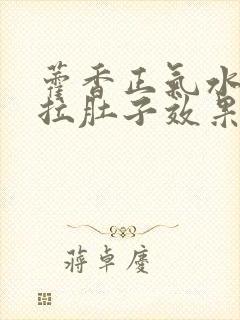 藿香正氣水
拉肚子效果
蔣卓慶